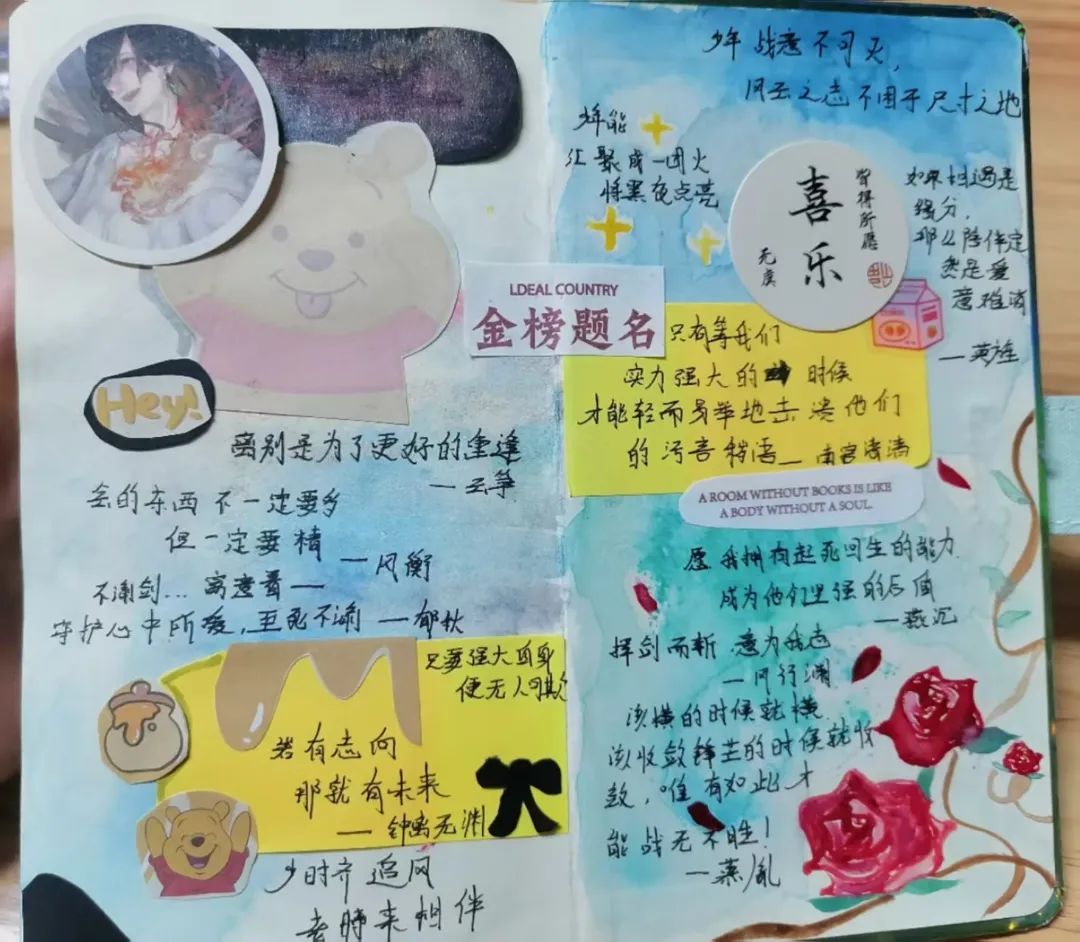 Hey!
离别是为了更好的重逢
—云筝
会的东西 不一定要多
但一定要精
—风衡
不渝剑... 离遭着—
守护心中所爱,至死不渝 —郁秋
只要强大自身
便无人可欺
若有志向
那就有未来
—钟离无渊
少时齐追风
老时来相伴
LDEAL COUNTRY
金榜题名
少年战意不可灭,
风云之志不困于尺寸之地
少年能
汇聚成一团火
将黑夜点亮
喜乐
皆得所愿
无虞
如果相遇是
缘分,
那么陪伴定
然是爱
意难消
只有等我们
实力强大的 时候
才能轻而易举地击溃他们
的污言秽语—南宫清清
A ROOM WITHOUT BOOKS IS LIKE
A BODY WITHOUT A SOUL.
愿我拥有起死回生的能力
成为他们坚强的后盾
—燕沉
挥剑而斩,意为我志
—风行澜
该横的时候就横
该收敛锋芒的时候就收
敛,唯有如此才
能战无不胜!